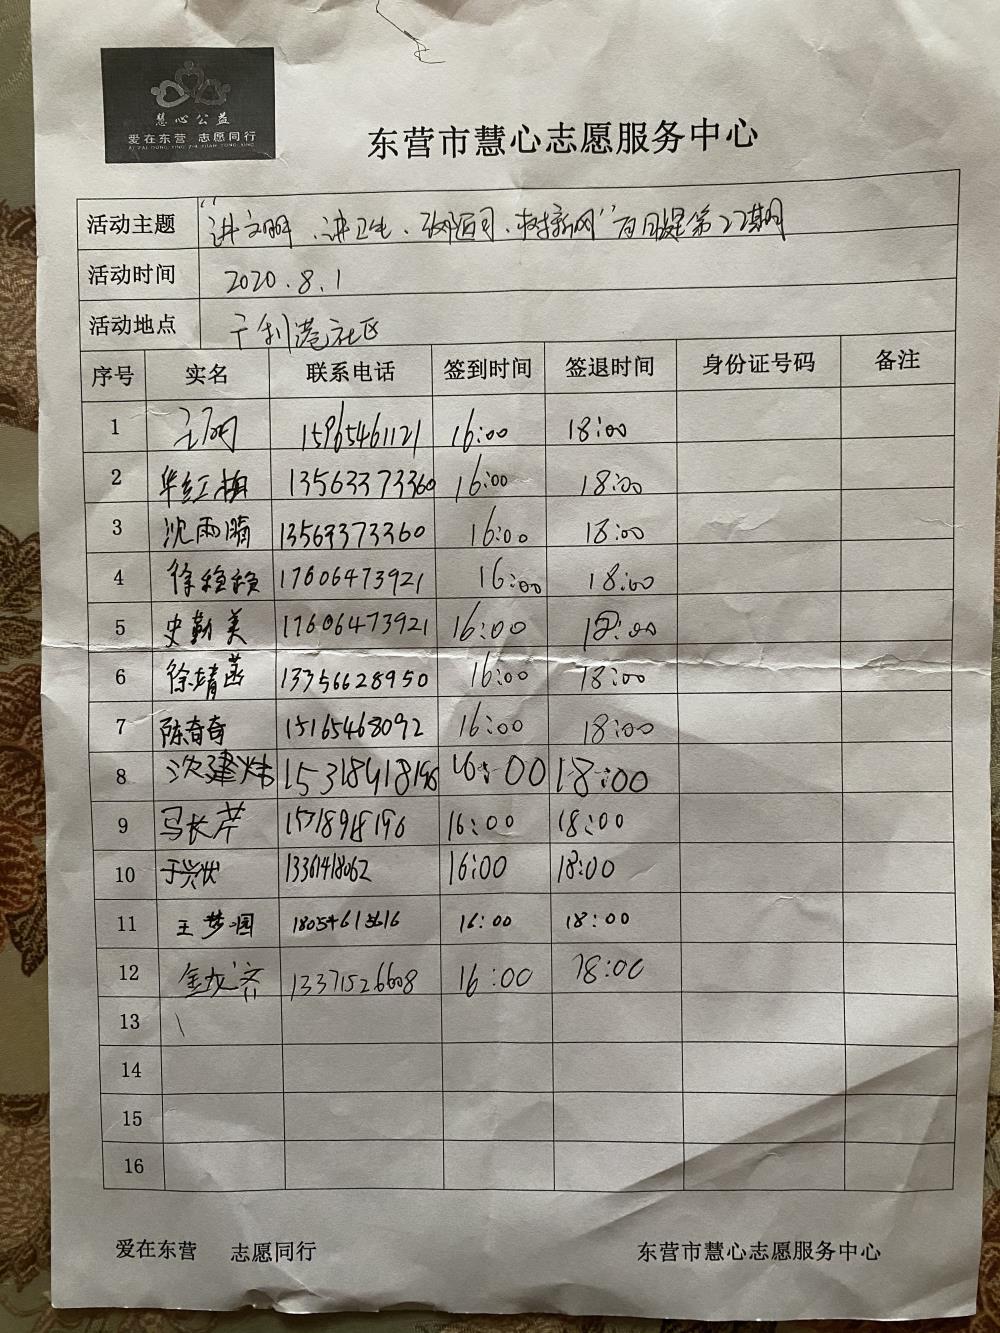 慧心公益
爱在东营 志愿同行
AI ZAI DONG YING ZHI YUAN TONG XING
东营市慧心志愿服务中心
活动主题 “讲文明、讲卫生、 、树新风”百日 第22期
活动时间 2020.8.1
活动地点 利港社区
序号 实名 联系电话 签到时间 签退时间 身份证号码 备注
1 15965461121 16:00 18:00
2 华红梅 13563373360 16:00 18:00
3 沈雨晴 13563373360 16:00 18:00
4 徐 17606473921 16:00 18:00
5 史勤美 17606473921 16:00 18:00
6 徐靖菡 13356628950 16:00 18:00
7 陈奇奇 15165468092 16:00 18:00
8 沈建炜 15318918196 16:00 18:00
9 马长芹 15318918196 16:00 18:00
10 于兴 13361418062 16:00 18:00
11 王梦圆 18054613616 16:00 18:00
12 金龙济 13371526608 16:00 18:00
13
14
15
16
爱在东营 志愿同行 东营市慧心志愿服务中心